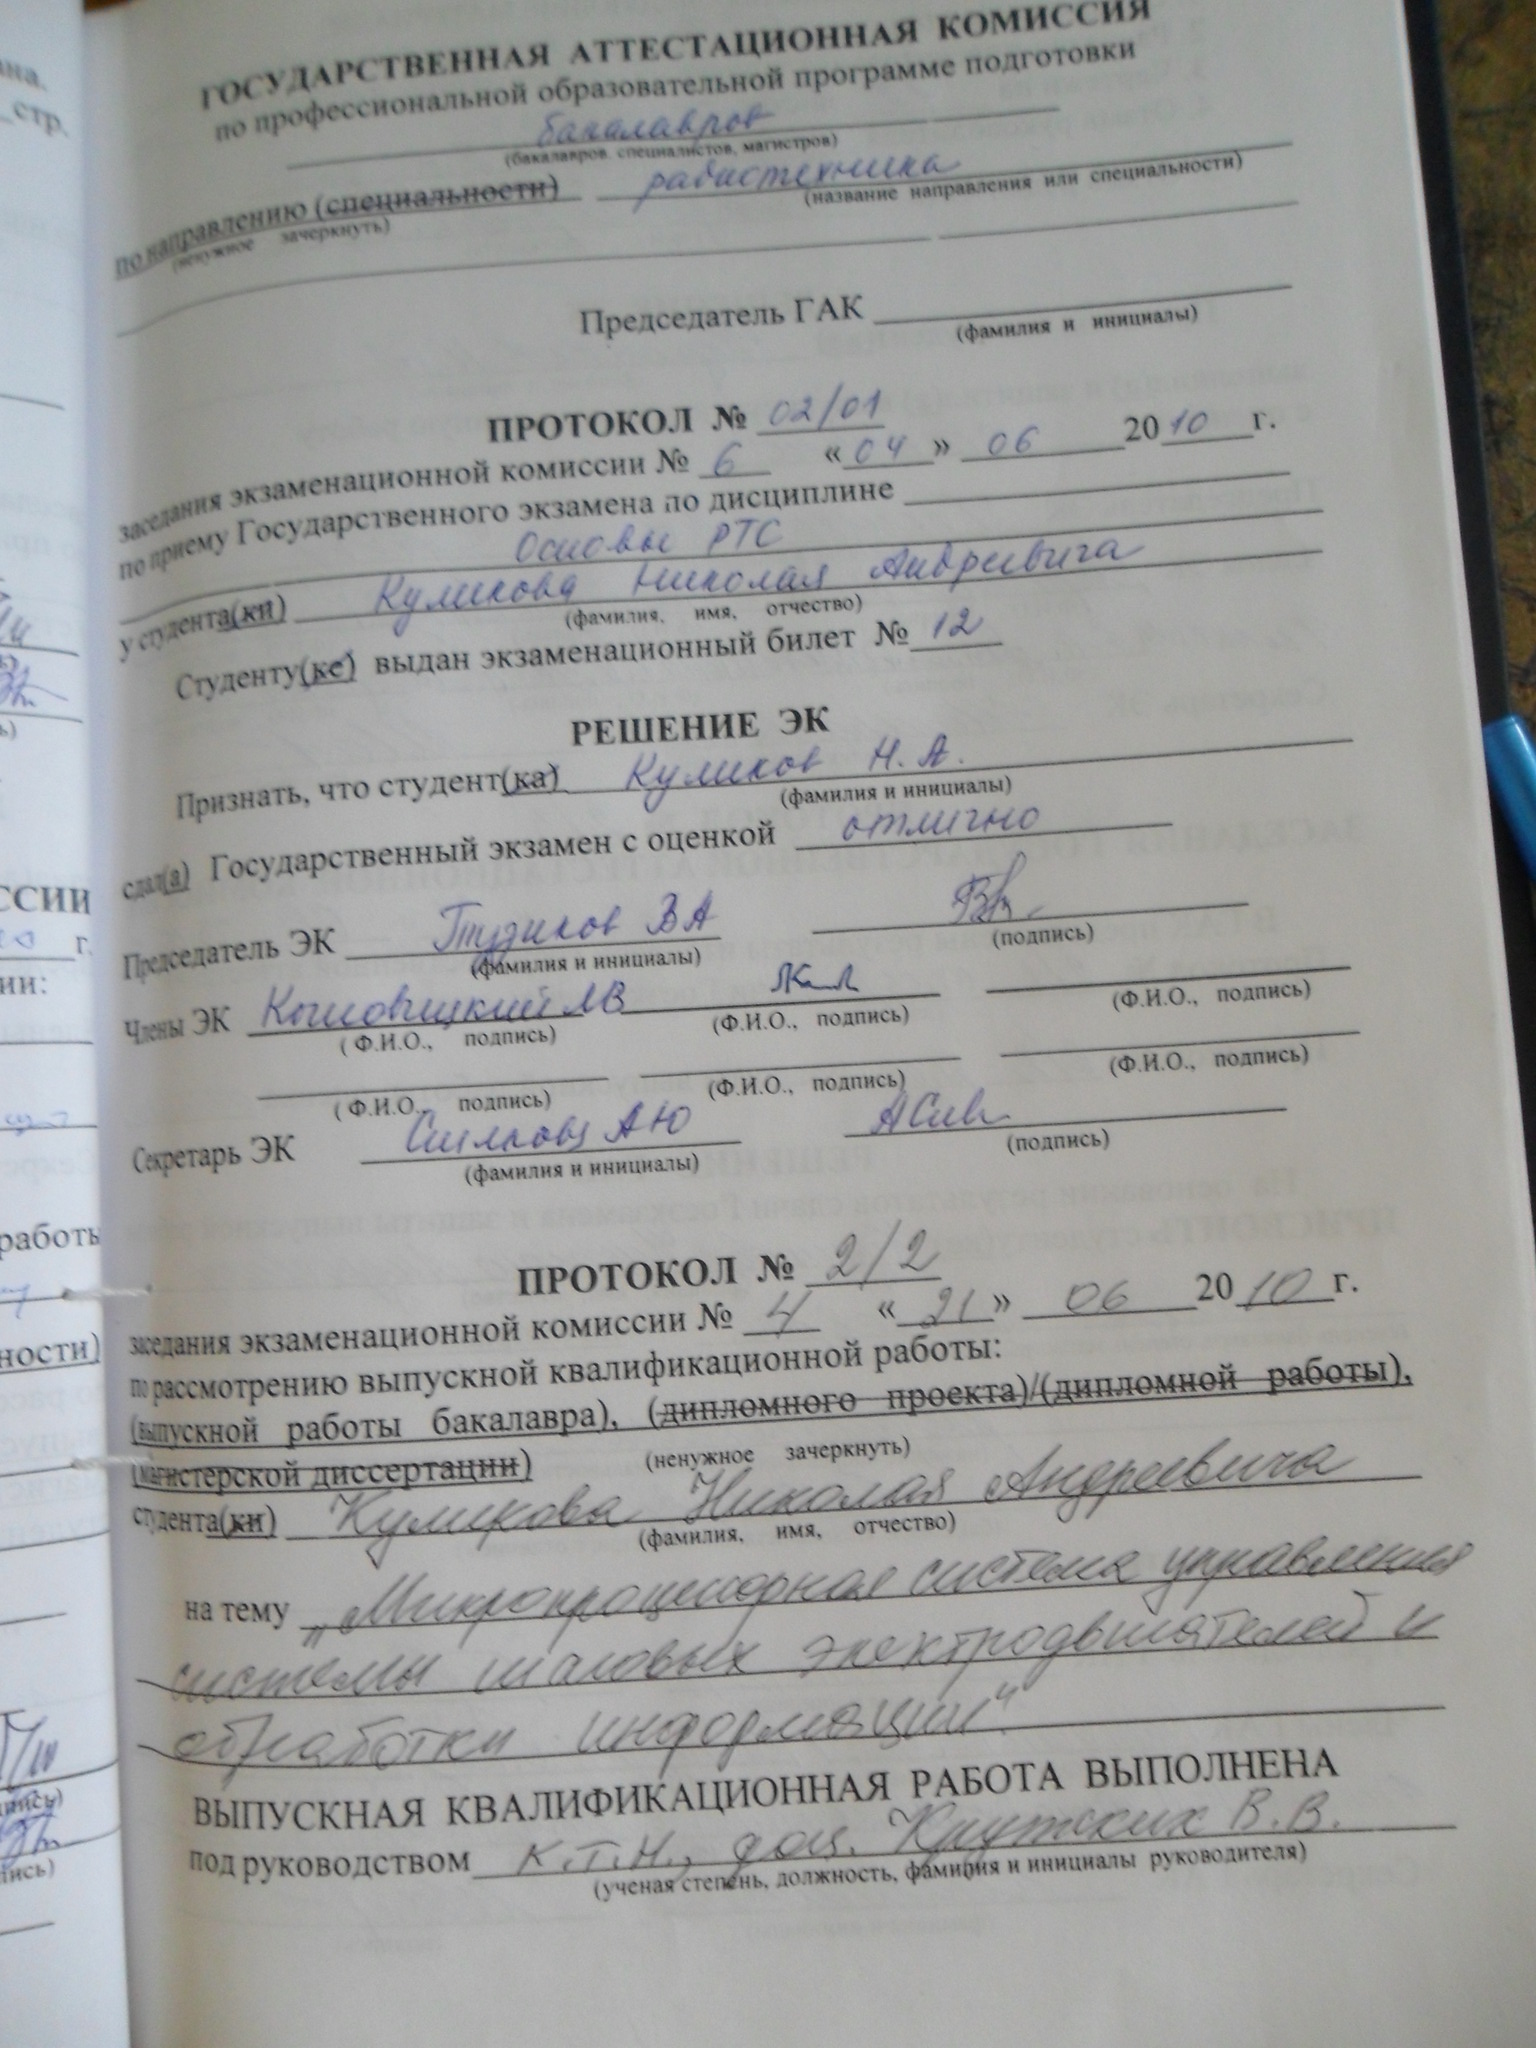 ГОСУДАРСТВЕННАЯ АТТЕСТАЦИОННАЯ КОМИССИЯ
по профессиональной образовательной программе подготовки
бакалавров
(бакалавров, специалистов, магистров)
по направлению (специальности) радиотехника
(ненужное зачеркнуть) (название направления или специальности)
Председатель ГАК
(фамилия и инициалы)
ПРОТОКОЛ № 02/01
заседания экзаменационной комиссии № 6 «04» 06 2010 г.
по приему Государственного экзамена по дисциплине
Основы РТС
у студента(ки) Куликова Николая Андреевича
(фамилия, имя, отчество)
Студенту(ке) выдан экзаменационный билет № 12
РЕШЕНИЕ ЭК
Признать, что студент(ка) Куликов Н. А.
(фамилия и инициалы)
сдал(а) Государственный экзамен с оценкой отлично
Председатель ЭК ВА
(фамилия и инициалы) (подпись)
Члены ЭК
(Ф.И.О., подпись) (Ф.И.О., подпись) (Ф.И.О., подпись)
(Ф.И.О., подпись) (Ф.И.О., подпись) (Ф.И.О., подпись)
Секретарь ЭК АЮ
(фамилия и инициалы) (подпись)
ПРОТОКОЛ № 2/2
заседания экзаменационной комиссии № 4 «21» 06 2010 г.
по рассмотрению выпускной квалификационной работы:
(выпускной работы бакалавра), (дипломного проекта)/(дипломной работы),
(магистерской диссертации) (ненужное зачеркнуть)
студента(ки) Куликова Николая Андреевича
(фамилия, имя, отчество)
на тему „Микропроцессорная система управления
системы шаговых электродвигателей и
обработки информации“.
ВЫПУСКНАЯ КВАЛИФИКАЦИОННАЯ РАБОТА ВЫПОЛНЕНА
под руководством к.т.н., доц. Крутских В.В.
(ученая степень, должность, фамилия и инициалы руководителя)